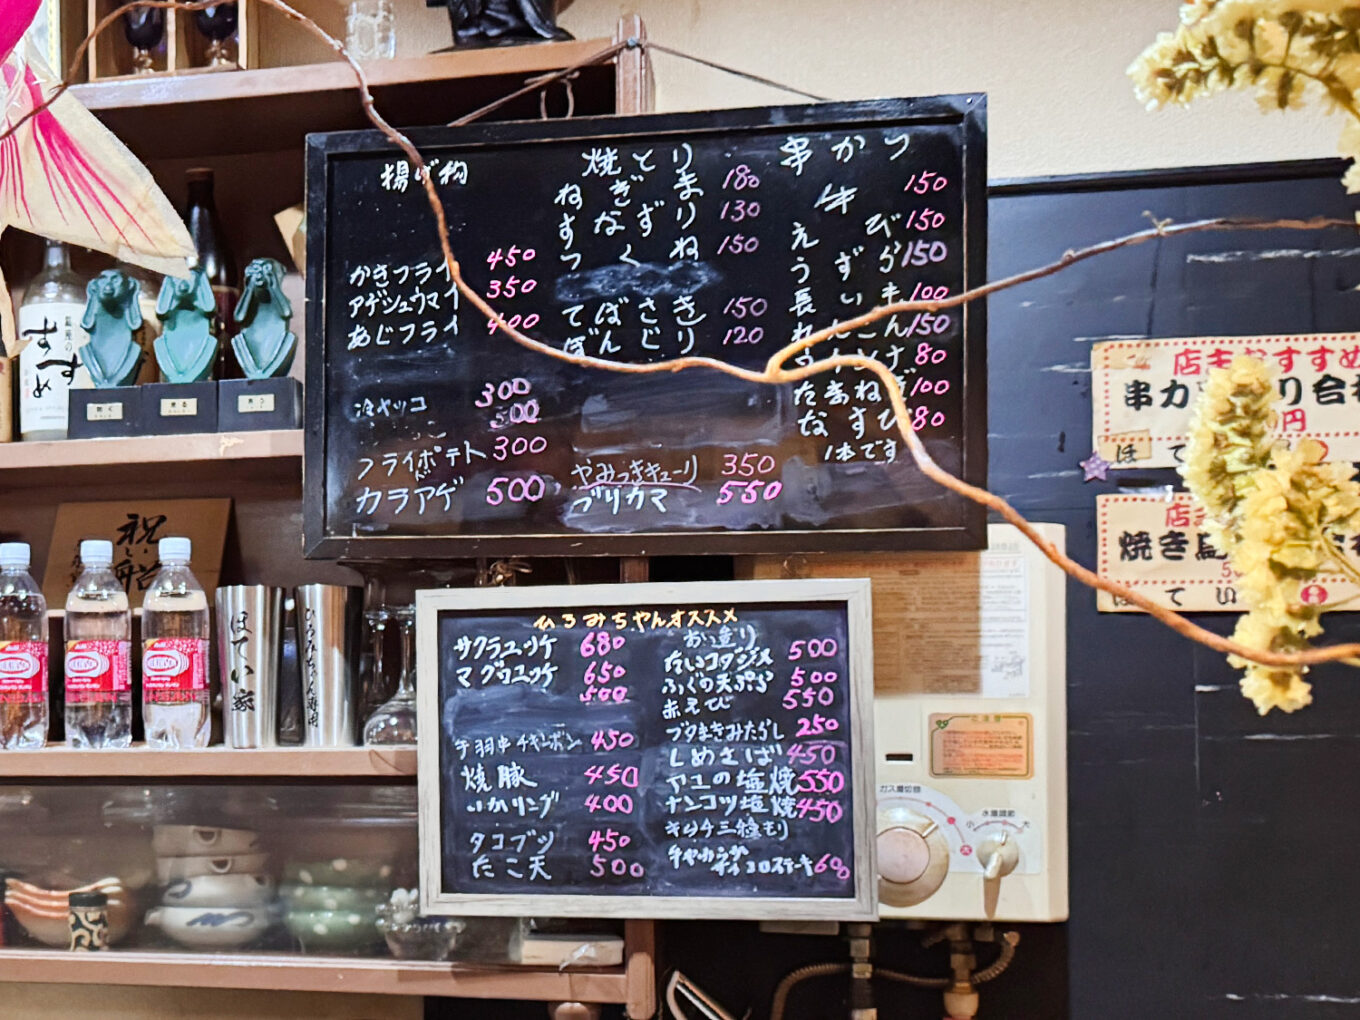 揚げ物
かきフライ 450
アゲシュウマイ 350
あじフライ 400
冷ヤッコ 300
500
フライポテト 300
カラアゲ 500
焼とり
ねぎま 180
すなずり 130
つくね 150
てばさき 150
ぼんじり 120
やみつきキューリ 350
ブリカマ 550
串かつ
牛 150
えび 150
うずら 150
長いも 100
れんこん 150
ウインナ 80
たまねぎ 100
なすび 80
1本です
ひろみちゃんオススメ
サクラユッケ 680
マグロユッケ 650
500
手羽中チキンボン 450
焼豚 450
いかリング 400
タコブツ 450
たこ天 500
お造り
たいコブジメ 500
ふぐの天ぷら 500
赤えび 550
ブタまきみたらし 250
しめさば 450
ナンコツ塩焼 450
キムチ三種もり
サイコロステーキ 600
すすめ
祝
ほてい家
ひろみちゃん専用
WILKINSON
店主おすすめ
串カツ
円
ほてい
店主
焼き鳥
ほてい
ガス量切替
水量調節
小 大